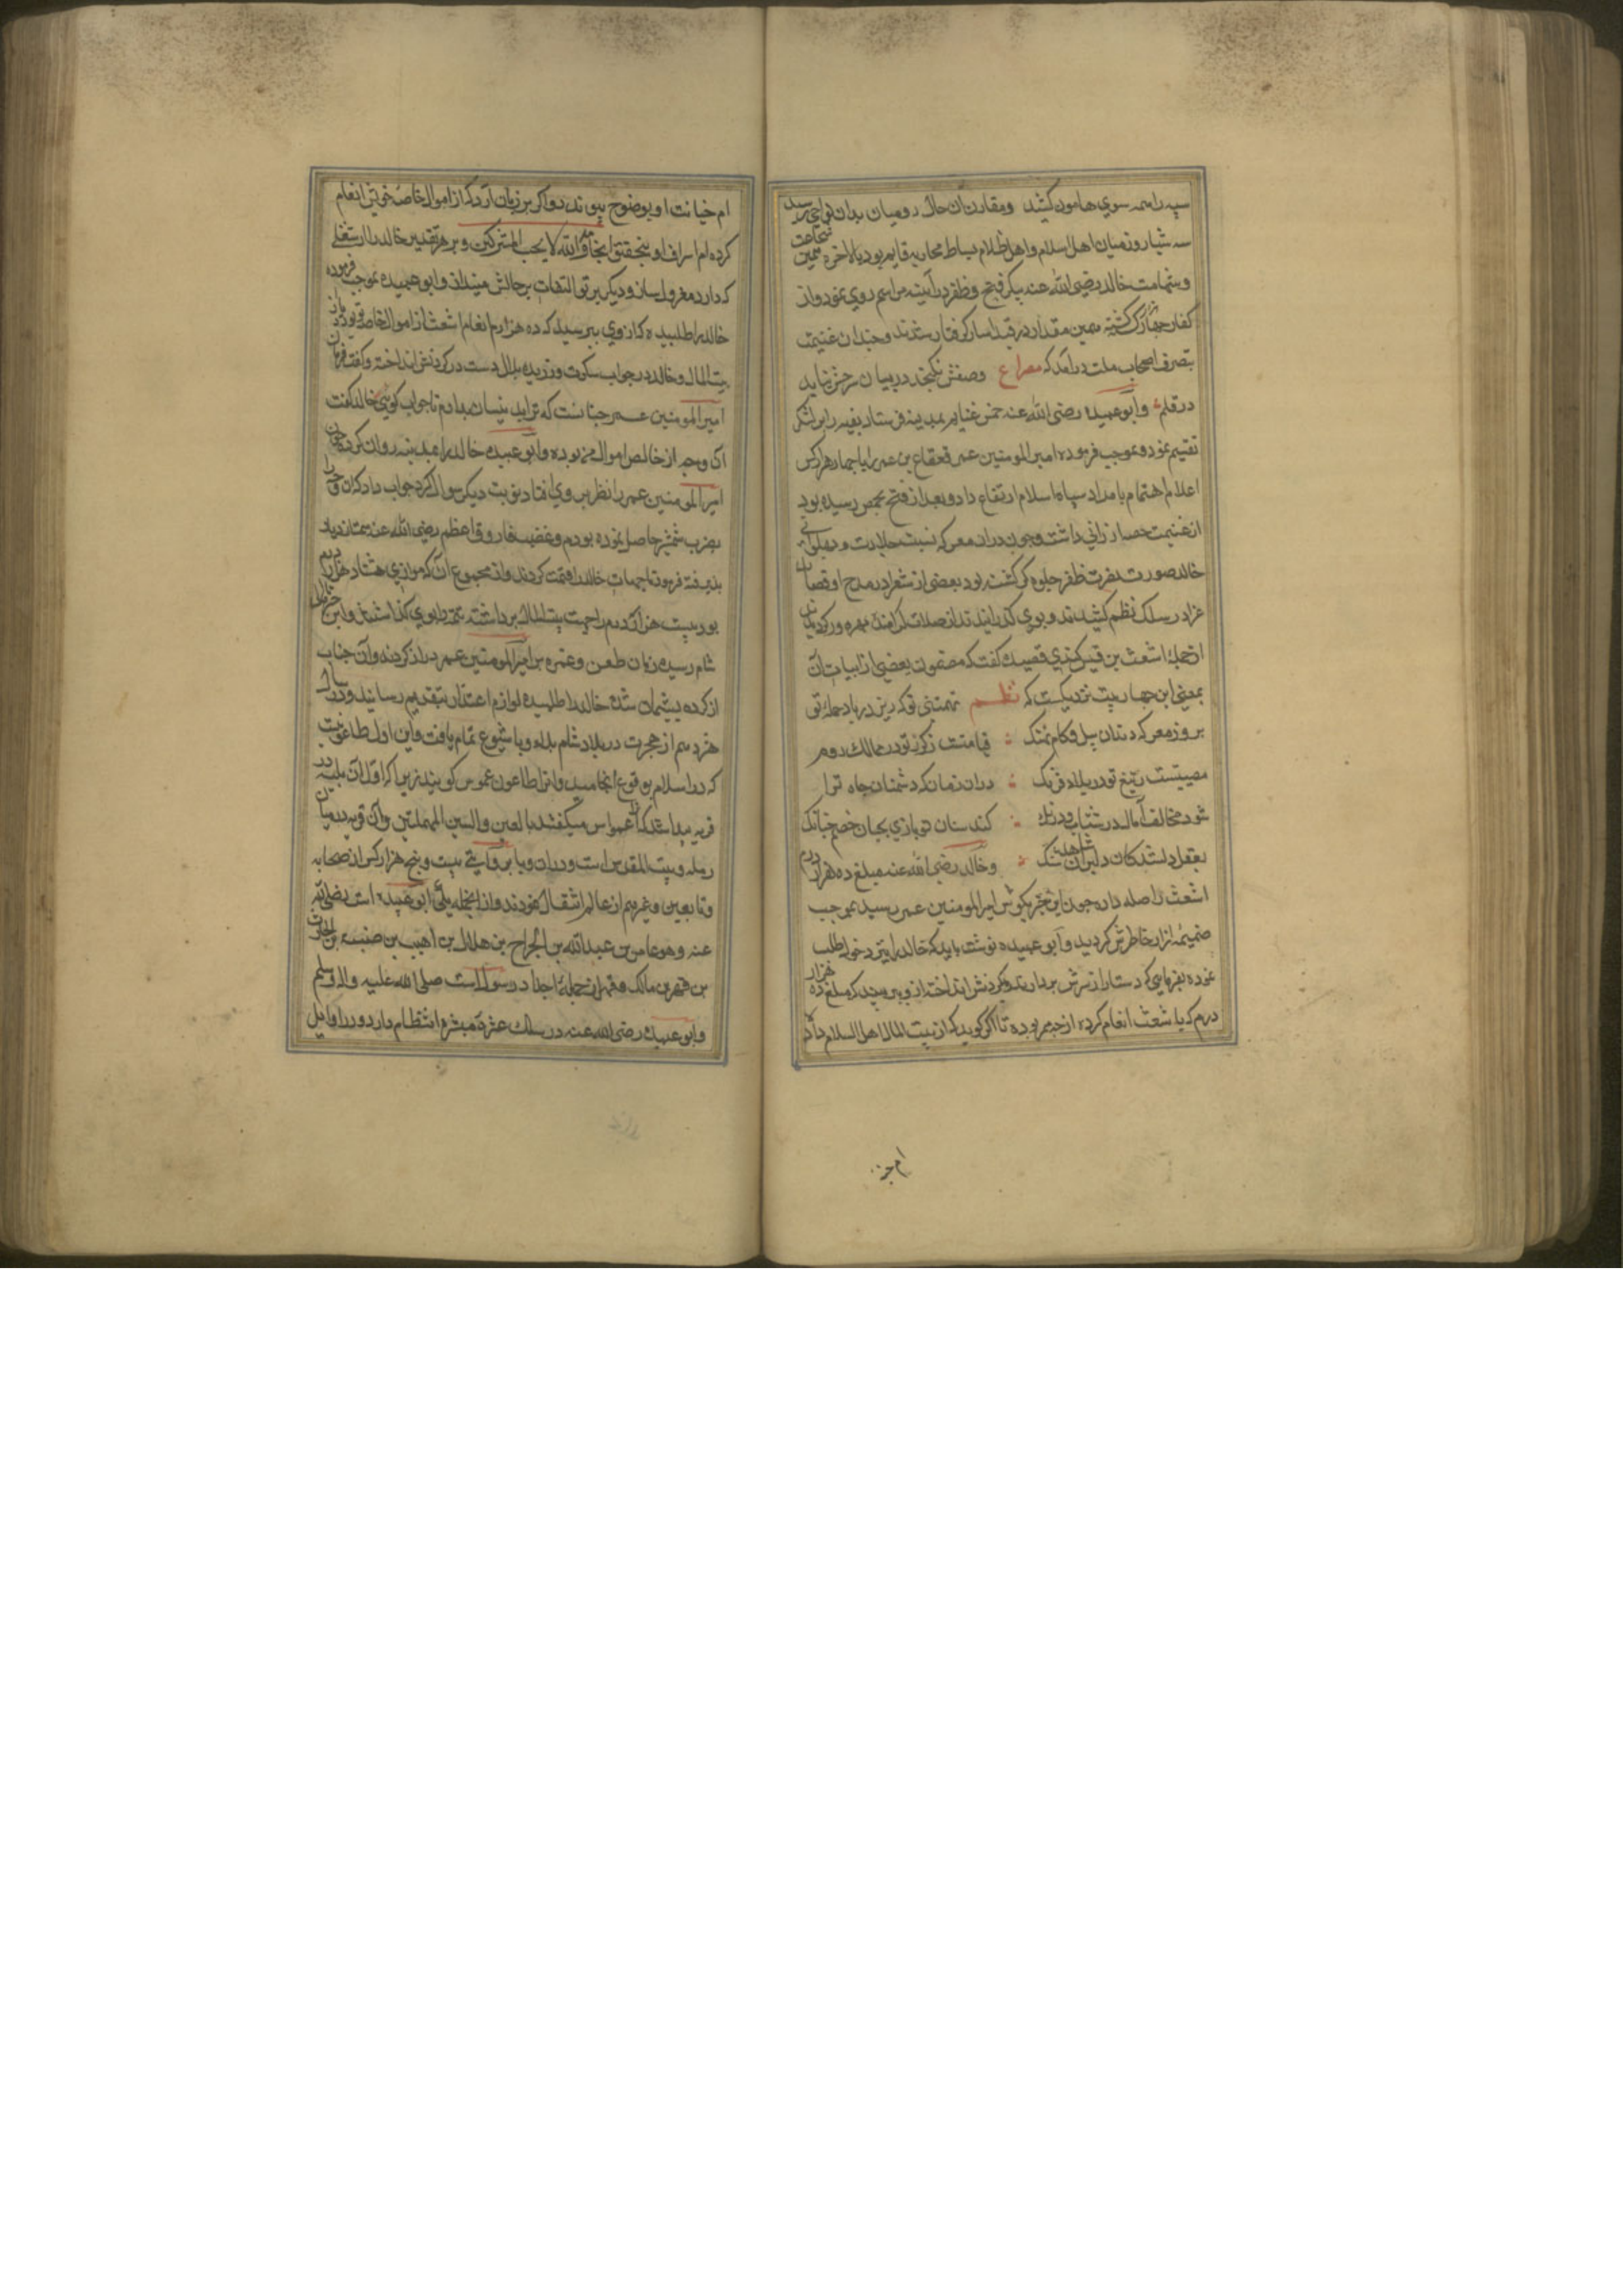 سپه را همه سوی هامون کشید و مقارن آن حال رومیان بدان نواحی رسید
سه شبانروز میان اهل اسلام و اهل ظلام بساط محاربه قایم بود بالاخره بیمن شجاعت
و شهامت خالد رضی الله عنه پیکر فتح و ظفر در آینه مراسم روی نمود و از
کفار چهار کس کشته همین مقدار در قید اسار گرفتار شدند و چندان غنیمت
بتصرف اصحاب ملت درآمد که مصراع وصفش نکنجد در بیان شرحش نیاید
در قلم و ابو عبیده رضی الله عنه خمس غنایم بمدینه فرستاد بقیه را بر لشکر
تقسیم نمود و بموجب فرموده امیر المومنین عمر قعقاع بن عمر با چهار هزار کس
اعلام اهتمام بامداد سپاه اسلام ارتفاع داد و بعد از فتح بحمص رسیده بود
از غنیمت حصه ارزانی داشت و چون دران معرکه نسبت جلادت و پهلوانی
خالد صورت نصرت ظفر جلوه گر کشته بود بعضی از شعرا در مدح او قصاید
غرا در سلک نظم کشیدند و بوی گذرانیدند از صلات گرامند بهره ور گردیدند
ازجمله اشعث بن قیس کندی قصیده گفت که مضمون بعضی از ابیات آن
بمعنی این چهار بیت نزدیکست که نظم تهمتنی تو که ریزد ز باد حمله تو
بروز معرکه دندان پیل و کام نهنگ قیامتست ز گرز تو در ممالک روم
مصیبتست ز تیغ تو در بلاد فرنگ دران زمان که دشمنان جاه ترا
شود مخالف آمال در شتاب و درنگ کند سنان تو بازی بجان خصم چنانک
بعقل دلشدکان دلبران شاهد شنگ و خالد رضی الله عنه مبلغ ده هزار درم
اشعث را صله داد چون این خبر بگوش امیر المومنین عمر رسید بموجب
ضمیمه ازار خاطرش گردید و بابو عبیده نوشت باید که خالد را پیش خود طلب
نموده بفرمایی که دستار از سرش بردارند و بگردنش انداخته از وی پرسید که مبلغ ده هزار
درم که باشعث انعام کرده از چه ممر بوده تا اگر گوید که از بیت المال اهل اسلام داده
ام جز
ام خیانت او بوضوح پیوندد و اگر بر زبان آرد که از اموال خاصه خویش انعام
کرده ام اسراف او بتحقیق انجامد و الله لا یحب المشرکین و بر هر تقدیر خالد را از شغلی
که دارد معزول ساز و دیگر پرتو التفات بر حالش مینداز و ابو عبیده بموجب فرموده
خالد را طلبیده که از وی بپرسید که ده هزار درم انعام اشعث از اموال خاصه تو بود یا از
بیت المال و خالد در جواب سکوت ورزیده بلال دست در گردنش انداخته و گفت فرمان
امیر المومنین عمر چنانست که ترا بدینسان بدارم تا جواب گویی خالد گفت
آن وجه از خالص اموال من بوده و ابو عبیده خالد را بمدینه روان کرده چون
امیر المومنین عمر را نظر بر وی افتاد نوبت دیگر سوال کرد جواب داد که ان وجه را
بضرب شمشیر حاصل نموده بودم و غضب فاروق اعظم رضی الله عنه سمت ازدیاد
پذیرفته فرمود تا جهات خالد را قیمت کردند و از مجموع آن که موازی هشتاد هزار درم
بود بیست هزار درم را جهت بیت المال برداشته تتمه را بوی گذاشتند و این خبر باهل
شام رسیده زبان طعن و غمزه بر امیر المومنین عمر دراز کردند و آن جناب
از کرده پشیمان شده خالد را طلبیده لوازم اعتذار بتقدیم رسانید و در سال
هژدهم از هجرت در بلاد شام بلاء وبا شیوع تمام یافت و این اول طاعونیست
که در اسلام بوقوع انجامید و انرا طاعون عمواس گویند زیرا که اول آن بلیه در
قریه پیدا شد که انرا عمواس میگفتند بالعین والسین المهملتین و آن قریه در میان
رمله و بیت المقدس است و دران وبا بروایتی بیست و پنج هزار کس از صحابه
و تابعین و غیرهم از عالم انتقال نمودند و از انجمله یکی ابو عبیده است رضی الله
عنه و هو عامر بن عبد الله بن الجراح بن هلال بن اهیب بن ضبه بن الحارث
بن فهر بن مالک و فهر از جمله اجداد رسولست صلی الله علیه واله وسلم
و ابو عبیده رضی الله عنه در سلک عشره مبشره انتظام دارد و در اوایل